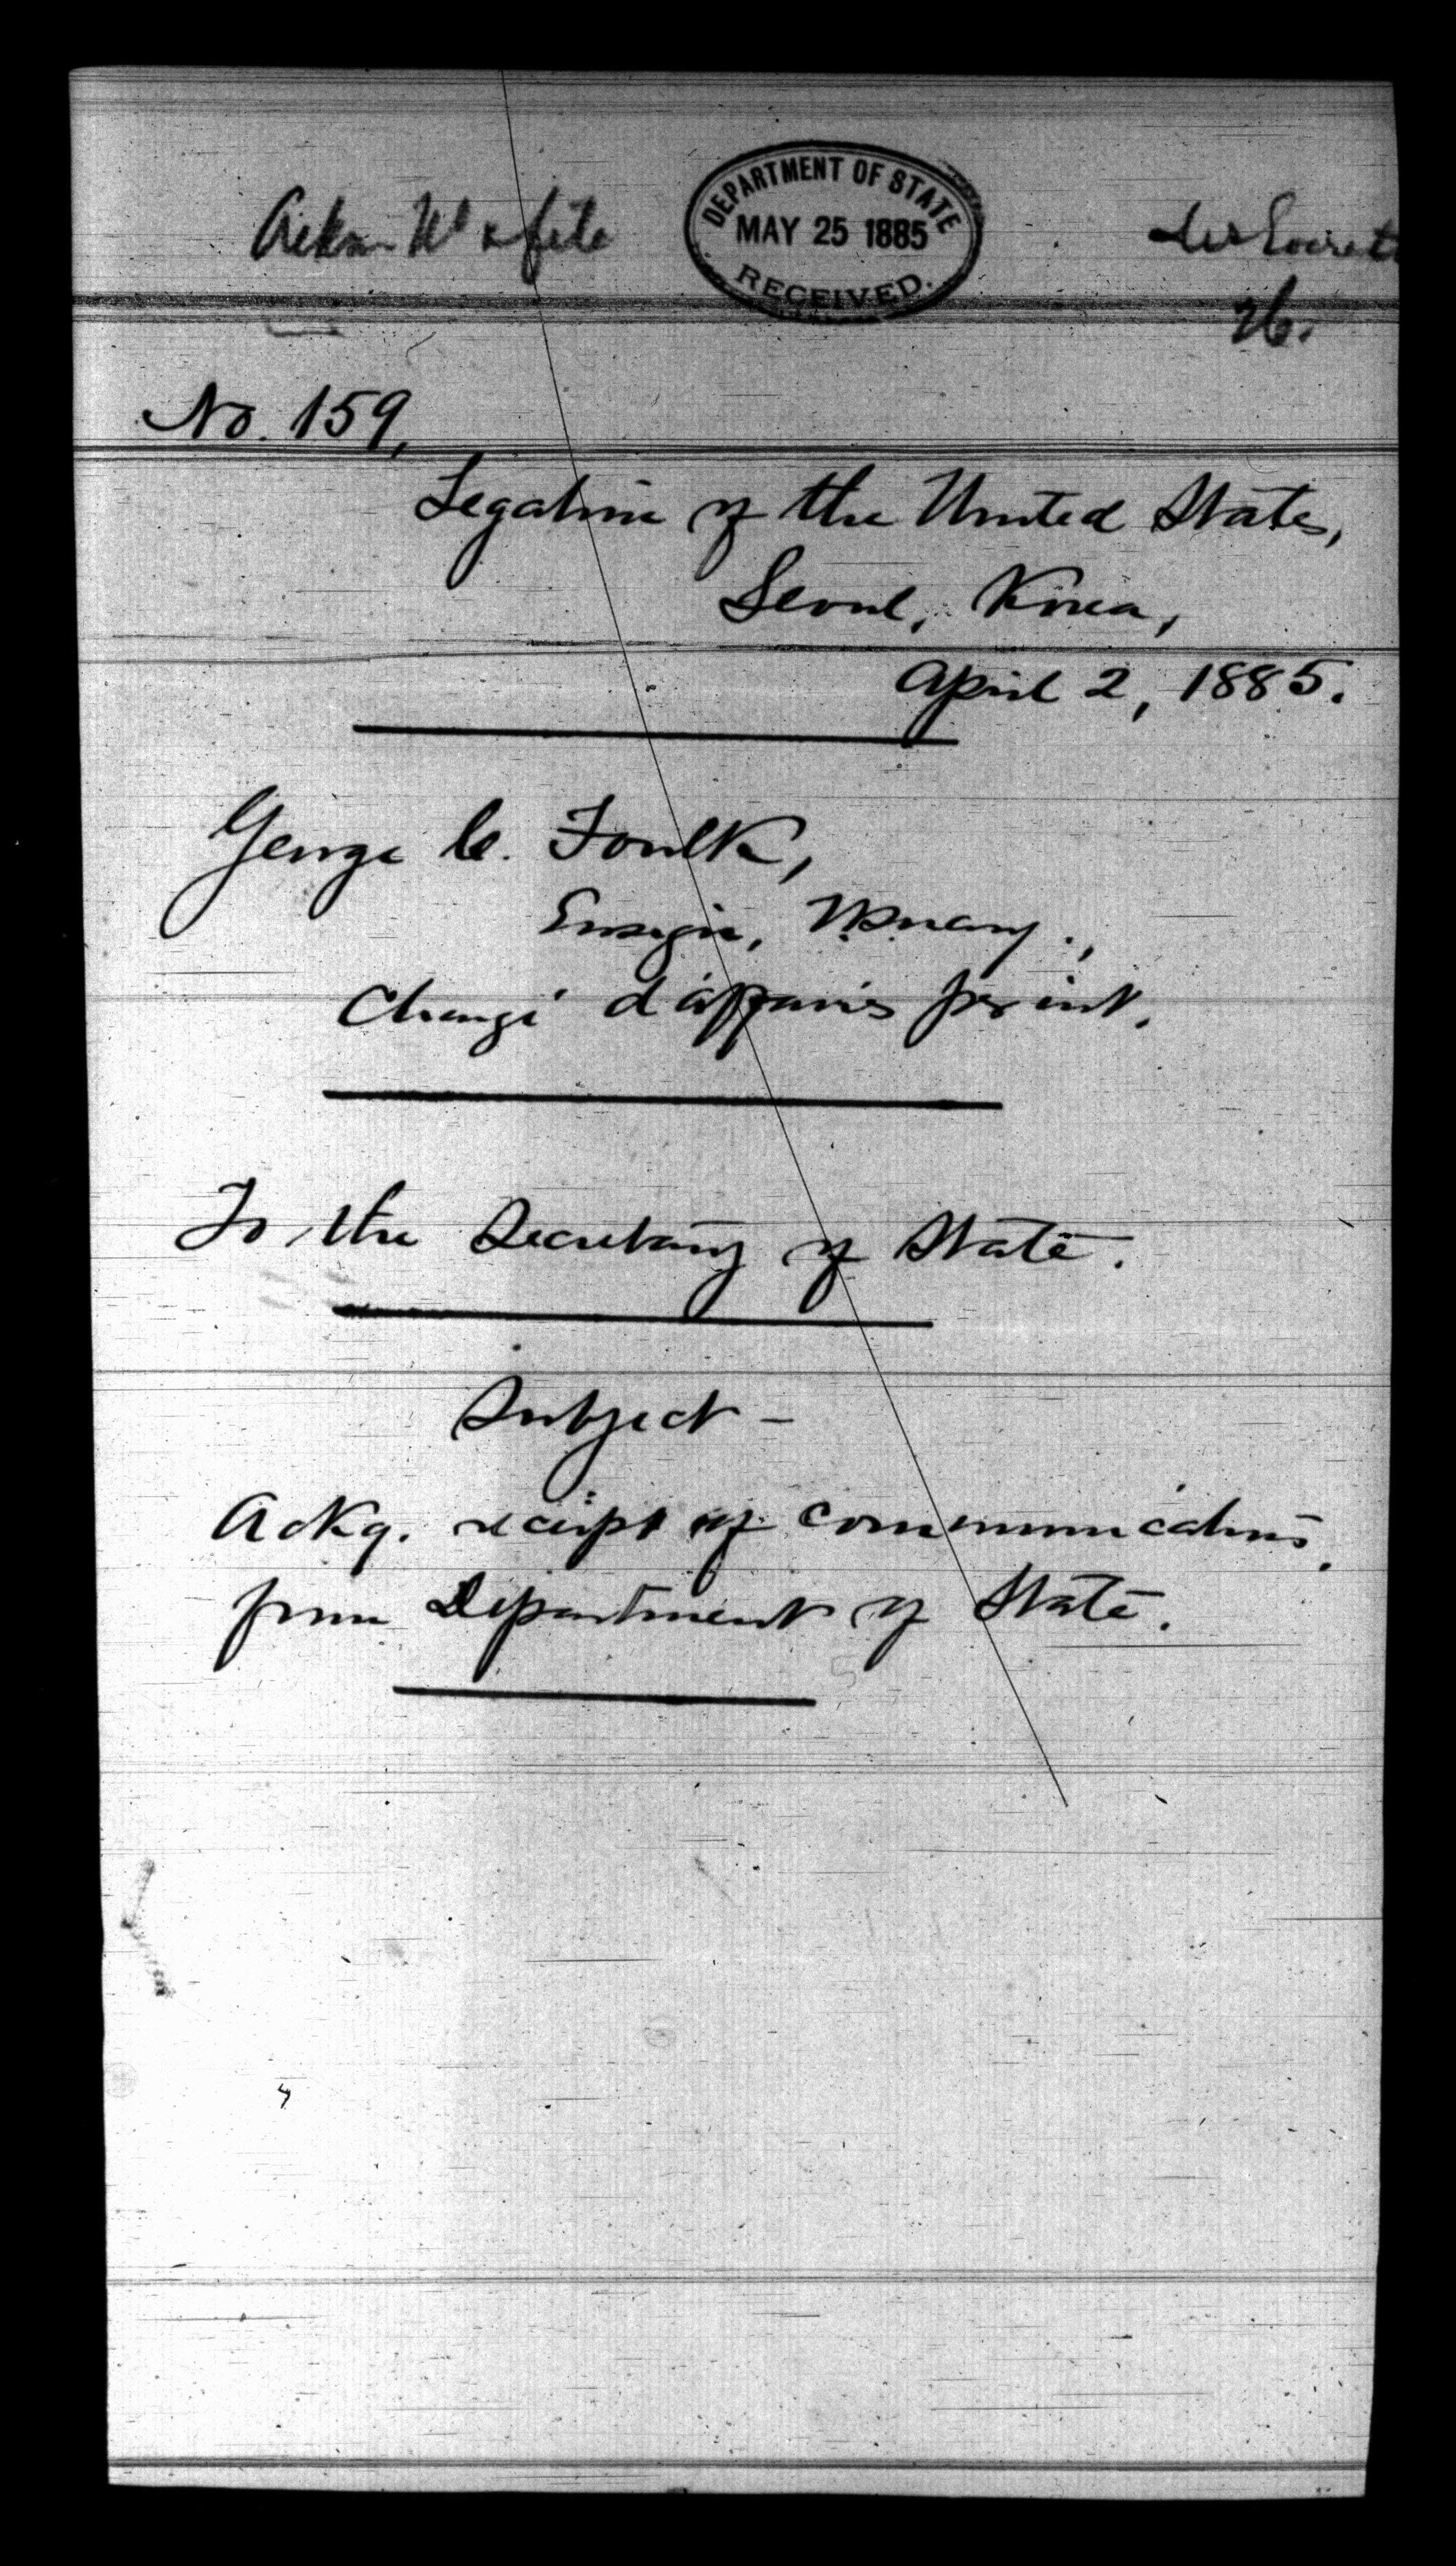 Ackn. & file
DEPARTMENT OF STATE
MAY 25 1885
RECEIVED.
26.
No. 159,
Legation of the United States,
Seoul, Korea,
April 2, 1885.
George C. Foulk,
Ensign, U.S. Navy.,
Chargé d'affaires per int.
To the Secretary of State.
Subject -
Ackg. receipt of communications,
from Department of State.